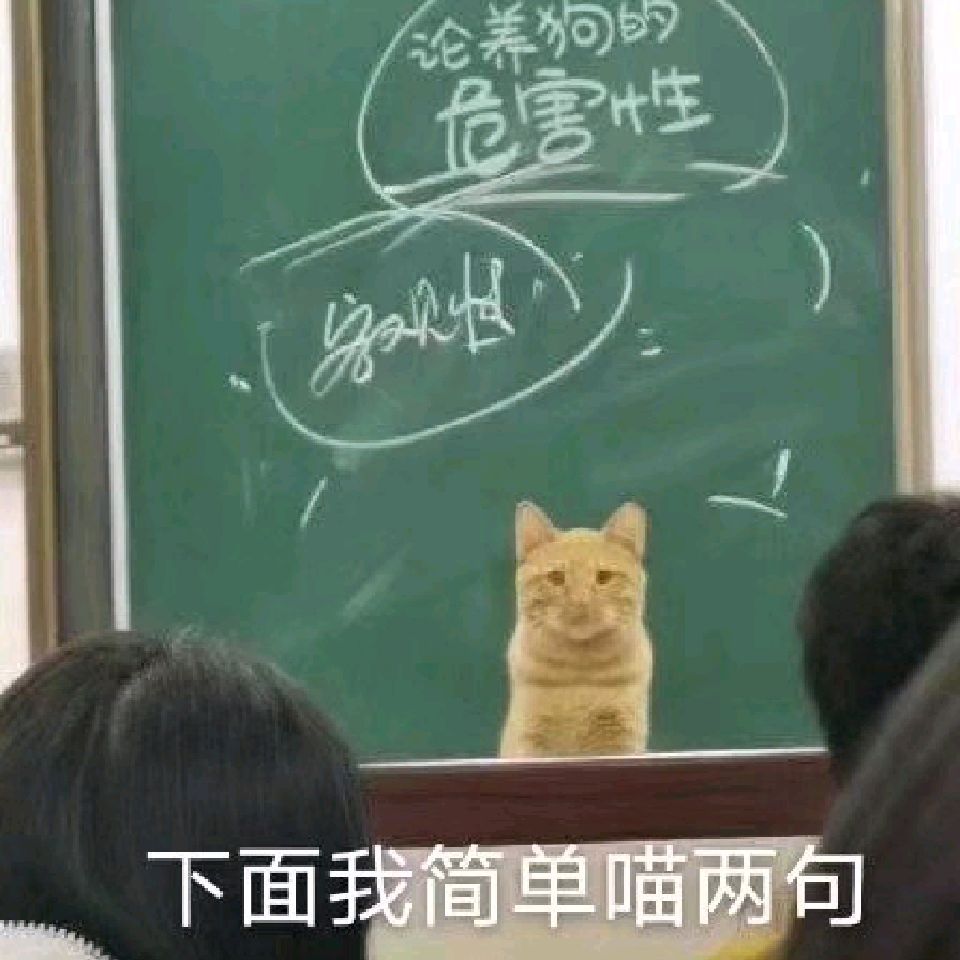 论养狗的
危害性
客观性
下面我简单喵两句